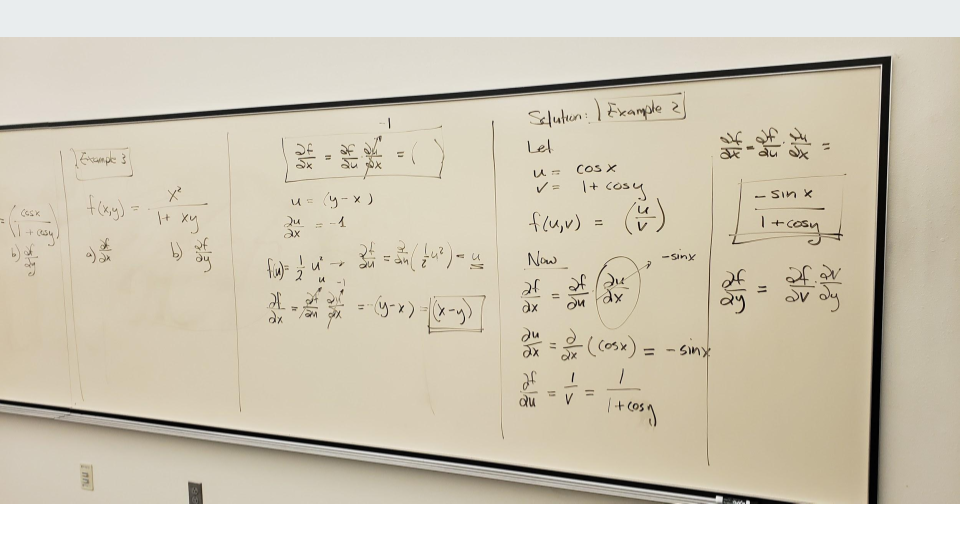 = (cosx / 1 + cosy)
b) ∂f/∂y
Example 3
f(x,y) = x² / 1 + xy
a) ∂f/∂x b) ∂f/∂y
-1
∂f/∂x = ∂f/∂u · ∂u/∂x = ( )
u = (y-x)
∂u/∂x = -1
f(u) = 1/2 u² → ∂f/∂u = ∂/∂u (1/2 u²) = u
u -1
∂f/∂x = ∂f/∂u ∂u/∂x = -(y-x) = (x-y)
Solution: Example 2
Let
u = cosx
v = 1 + cosy
f(u,v) = (u/v)
Now
∂f/∂x = ∂f/∂u · ∂u/∂x → -sinx
∂u/∂x = ∂/∂x (cosx) = -sinx
∂f/∂u = 1/v = 1 / 1+cosy
∂f/∂x = ∂f/∂u · ∂u/∂x =
-sin x / 1 + cosy
∂f/∂y = ∂f/∂v · ∂v/∂y